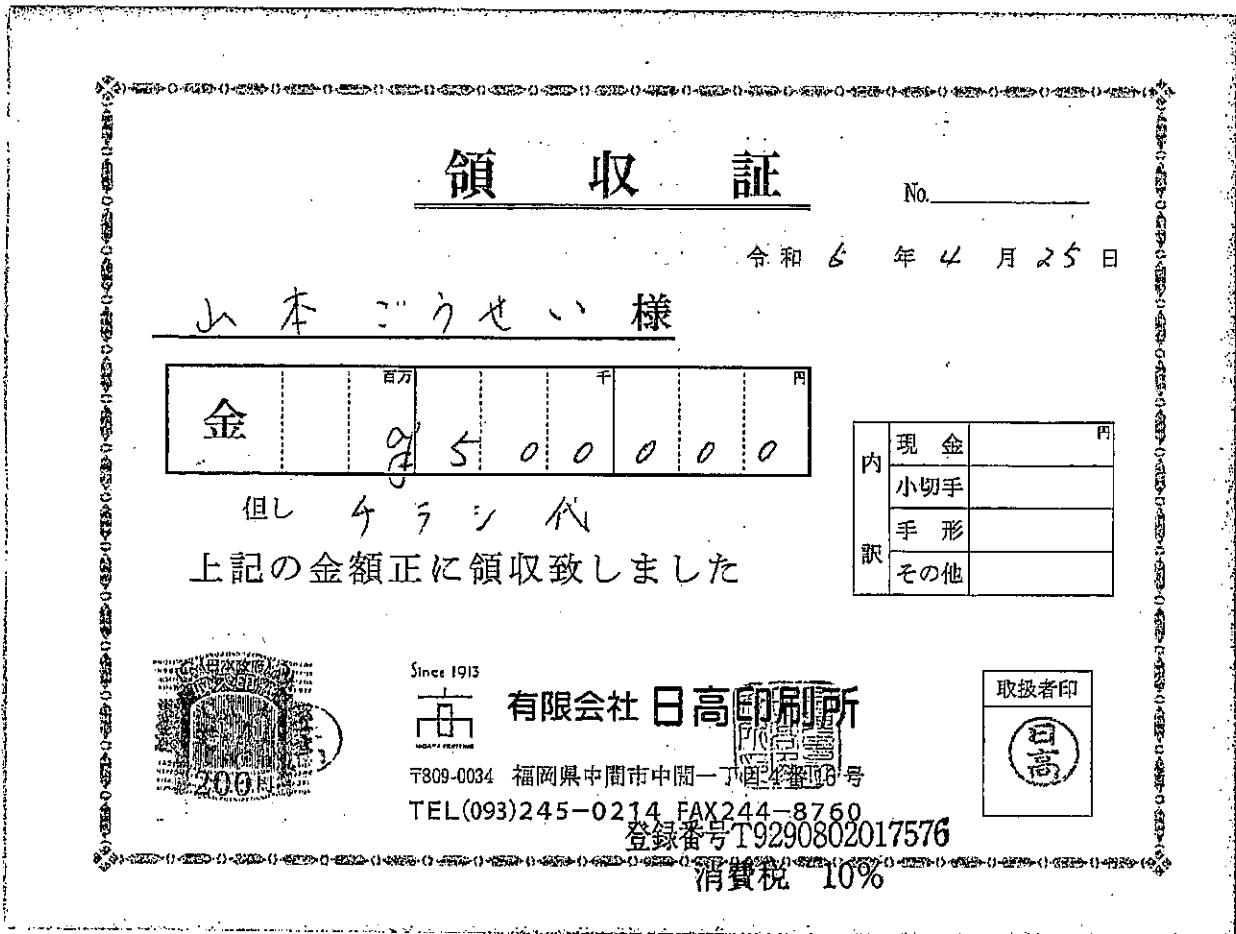 領収証
No.
令和 6 年 4 月 25 日
山本ごうせい 様
百万 千 円
金 ¥500000
但し チラシ代
上記の金額正に領収致しました
内訳
現金 円
小切手
手形
その他
200円
Since 1913
有限会社 日高印刷所
〒809-0034 福岡県中間市中間一丁目4番16号
TEL(093)245-0214 FAX244-8760
登録番号T9290802017576
消費税 10%
取扱者印
日高